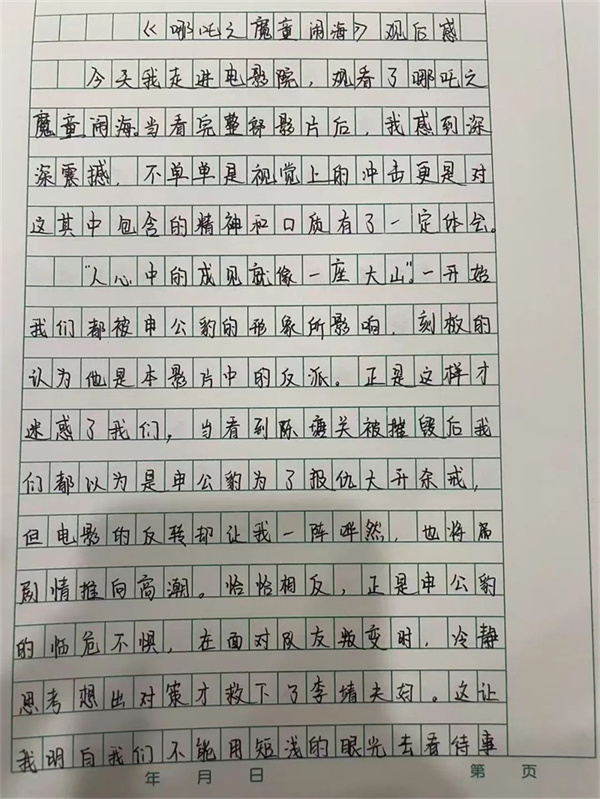 《哪吒之魔童闹海》观后感
今天我走进电影院，观看了哪吒之
魔童闹海。当看完整部影片后，我感到深
深震撼，不单单是视觉上的冲击更是对
这其中包含的精神和口质有了一定体会。
"人心中的成见就像一座大山"。一开始
我们都被申公豹的形象所影响，刻板的
认为他是本影片中的反派。正是这样才
迷惑了我们，当看到陈塘关被摧毁后我
们都以为是申公豹为了报仇大开杀戒，
但电影的反转却让我一阵哗然，也将
剧情推向高潮。恰恰相反，正是申公豹
的临危不惧，在面对队友叛变时，冷静
思考想出对策才救下了李靖夫妇。这让
我明白我们不能用短浅的眼光去看待事
年 月 日 第 页